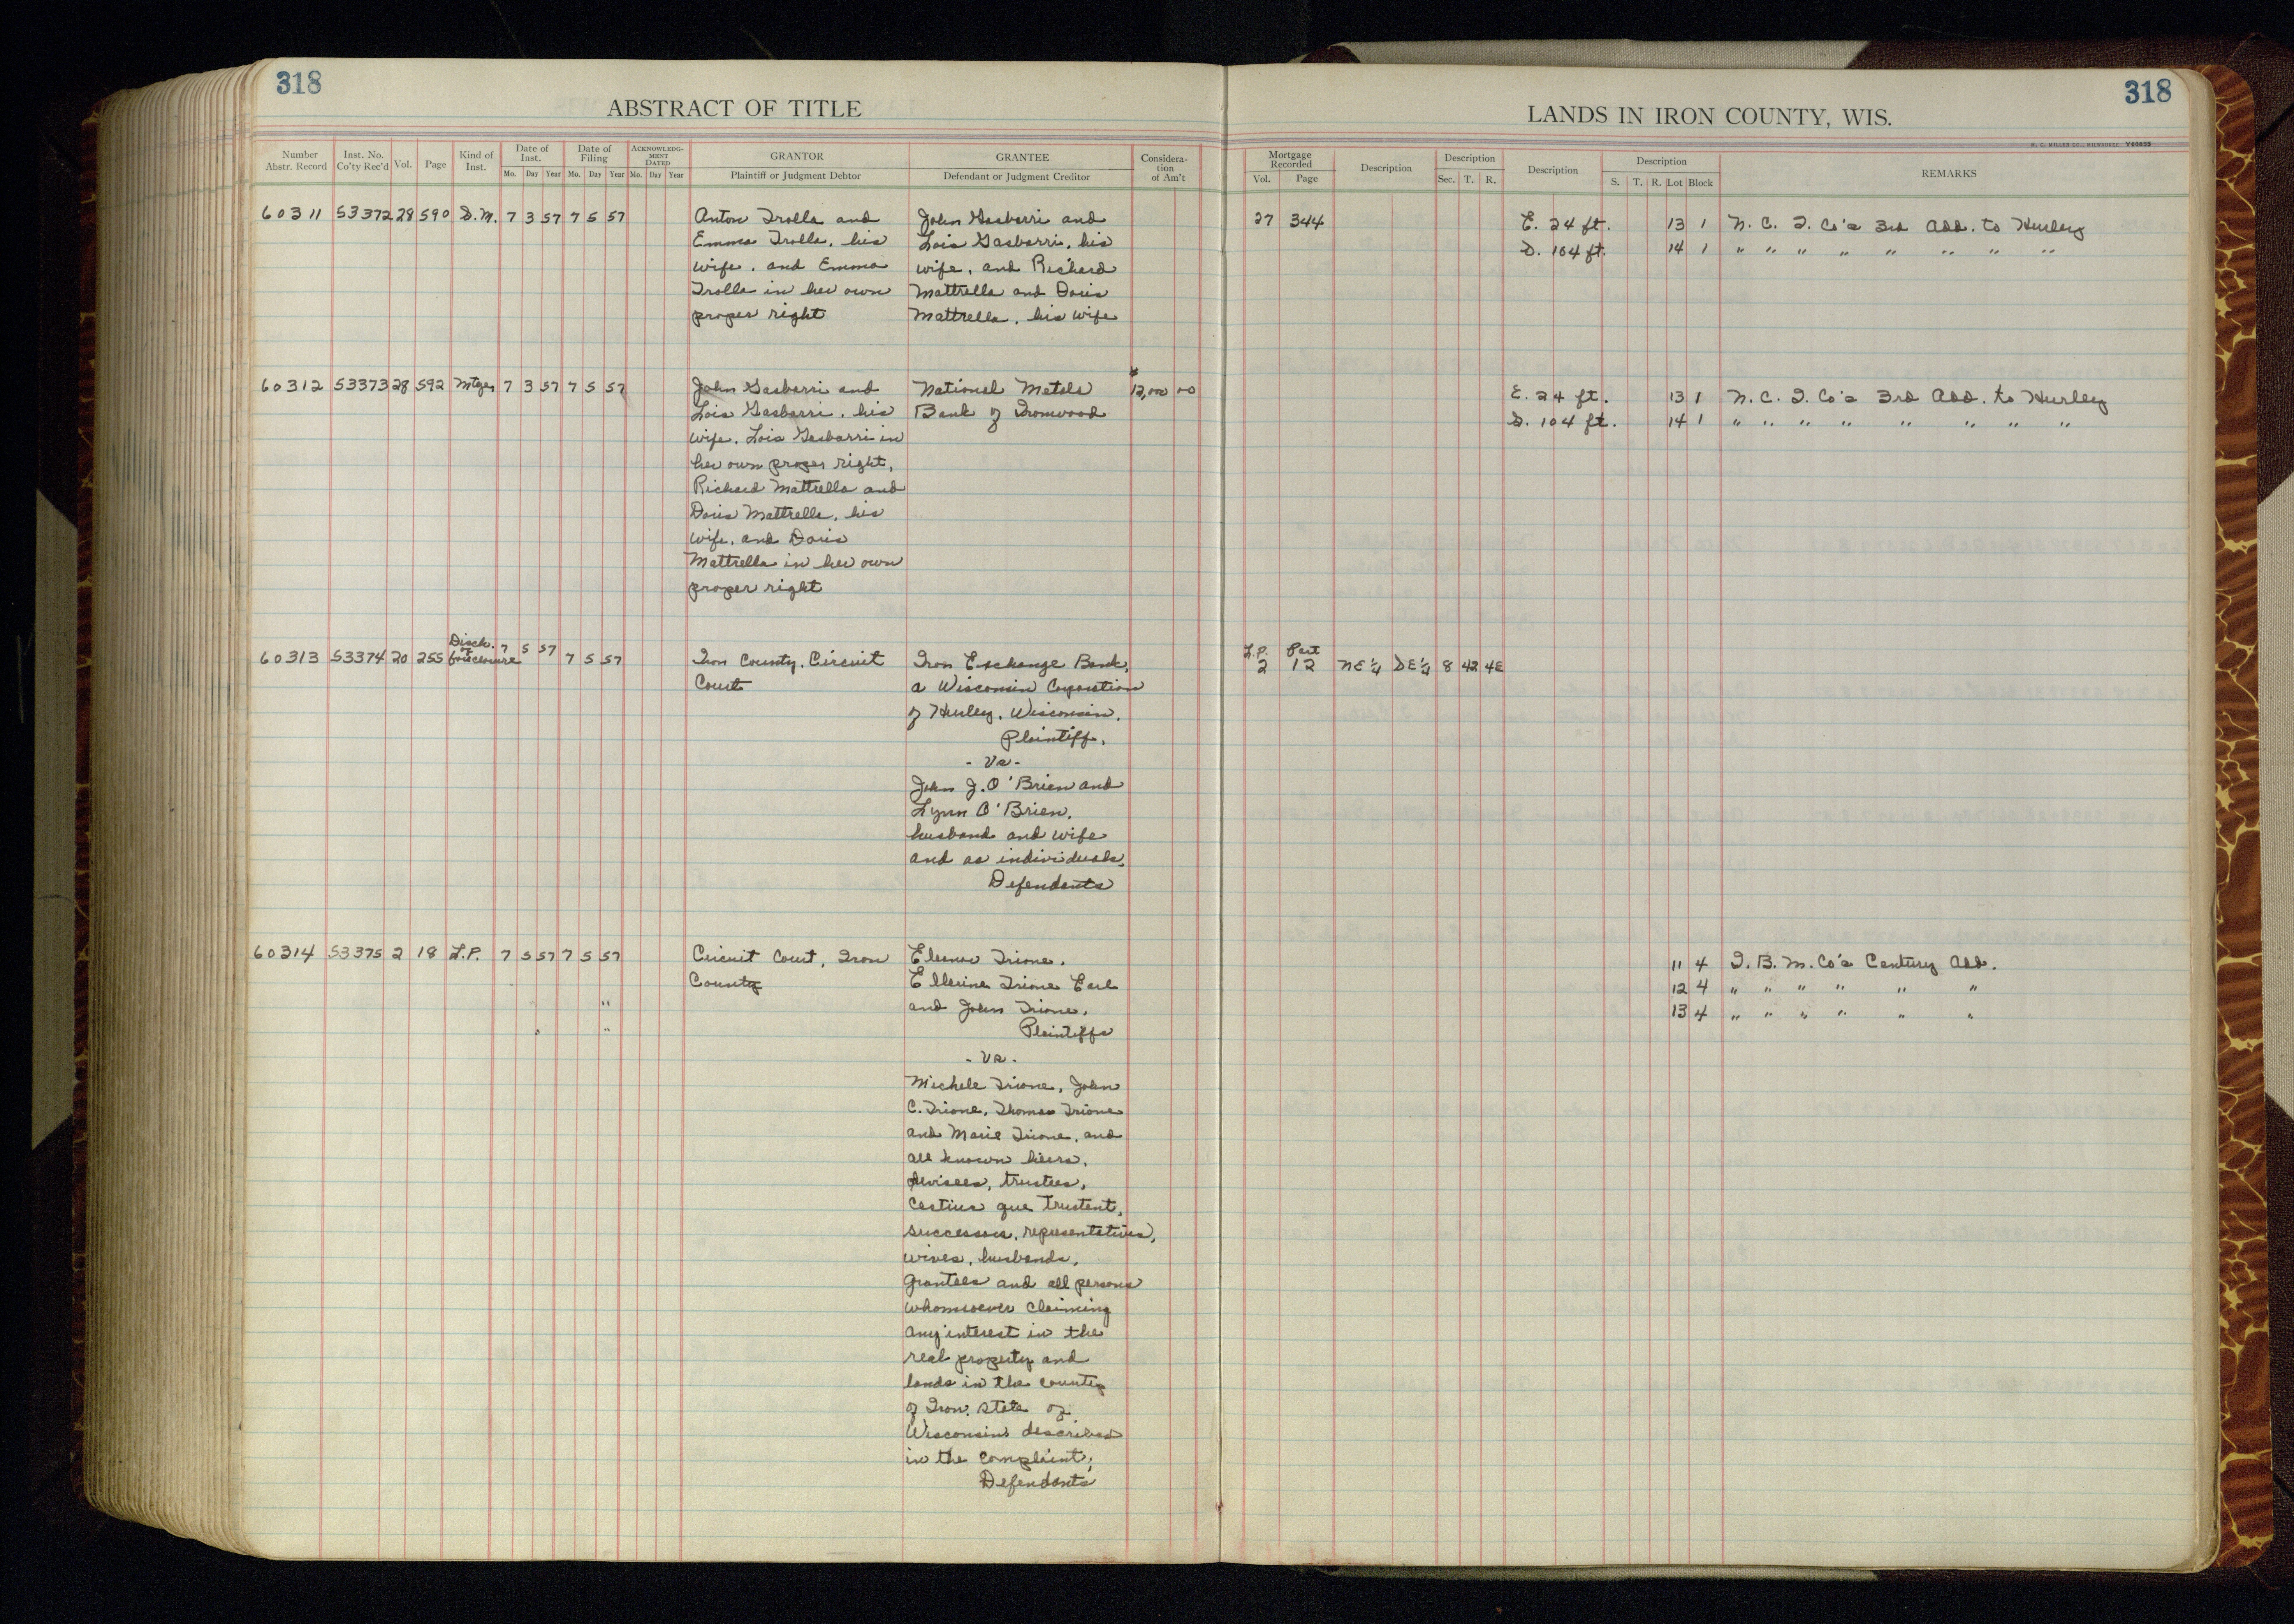 318
ABSTRACT OF TITLE
Number Abstr. Record | Inst. No. Co'ty Rec'd | Vol. | Page | Kind of Inst. | Date of Inst. Mo. Day Year | Date of Filing Mo. Day Year | ACKNOWLEDGMENT DATED Mo. Day Year | GRANTOR Plaintiff or Judgment Debtor | GRANTEE Defendant or Judgment Creditor | Consideration of Am't
60311 53372 28 590 S.M. 7 3 57 7 5 57 Anton Trolla and | John Gasbarri and
Emma Trolla, his | Lois Gasbarri, his
wife, and Emma | wife, and Richard
Trolla in her own | Mattrella and Doris
proper right | Mattrella, his wife
60312 53373 28 592 Mtge. 7 3 57 7 5 57 John Gasbarri and | National Metals | $12,000 00
Lois Gasbarri, his | Bank of Ironwood
wife, Lois Gasbarri in
her own proper right,
Richard Mattrella and
Doris Mattrella, his
wife, and Doris
Mattrella in her own
proper right
60313 53374 20 255 Disch. of foreclosure 7 5 57 7 5 57 Iron County, Circuit | Iron Exchange Bank,
Court | a Wisconsin Corporation
of Hurley, Wisconsin,
Plaintiff,
- Vs -
John J. O'Brien and
Lynn O'Brien,
husband and wife
and as individuals,
Defendants
60314 53375 2 18 L.P. 7 5 57 7 5 57 Circuit Court, Iron | Eleanor Trione,
County | Ellerine Trione Earl
" | and John Trione,
" " | Plaintiffs
- Vs -
Michele Trione, John
C. Trione, Thomas Trione
and Marie Trione, and
all known heirs,
devisees, trustees,
Cestius que trustent,
successors, representatives,
wives, husbands,
grantees and all persons
whomsoever claiming
any interest in the
real property and
lands in the county
of Iron, state of
Wisconsin described
in the complaint,
Defendants
318
LANDS IN IRON COUNTY, WIS.
H. C. MILLER CO., MILWAUKEE V60855
Mortgage Recorded Vol. Page | Description | Description Sec. T. R. | Description | Description S. T. R. Lot Block | REMARKS
27 344 E. 24 ft. 13 1 N. C. I. Co's 3rd Add. to Hurley
S. 104 ft. 14 1 " " " " " " " "
E. 24 ft. 13 1 N. C. I. Co's 3rd Add. to Hurley
S. 104 ft. 14 1 " " " " " " " "
L.P. Part
2 12 NE¼ SE¼ 8 42 4E
11 4 I. B. M. Co's Century Add.
12 4 " " " " " "
13 4 " " " " " "